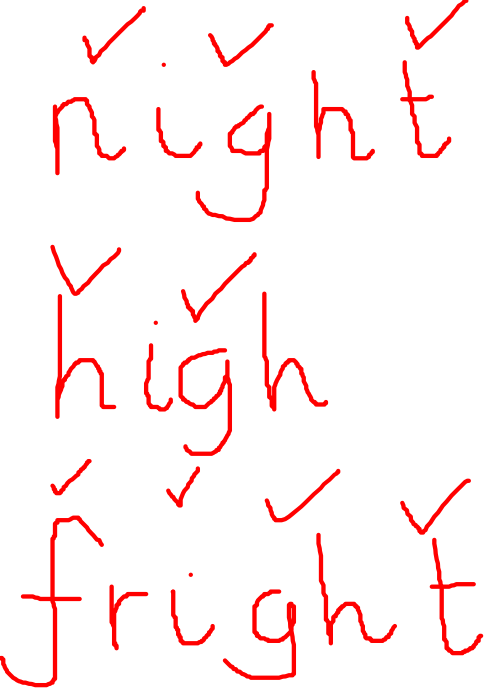 night
high
fright